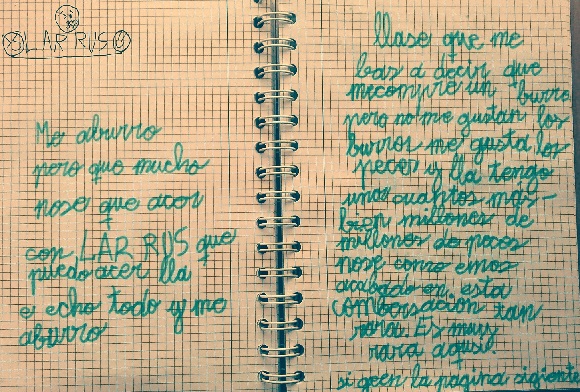 LAR RUS
Me aburro
pero que mucho
nose que acer
con LAR RUS que
puedo acer lla
e echo todo y me
aburro
llase que me
bas a decir que
mecompre un burro
pero no me gustan los
burros me gusta los
peces y lla tengo
unos cuantos mas-
bien millones de
millones de peces
nose como emos
acabado en esta
combersación tan
rara. Es muy
rara aqusi.
si geen la pagina sigiente